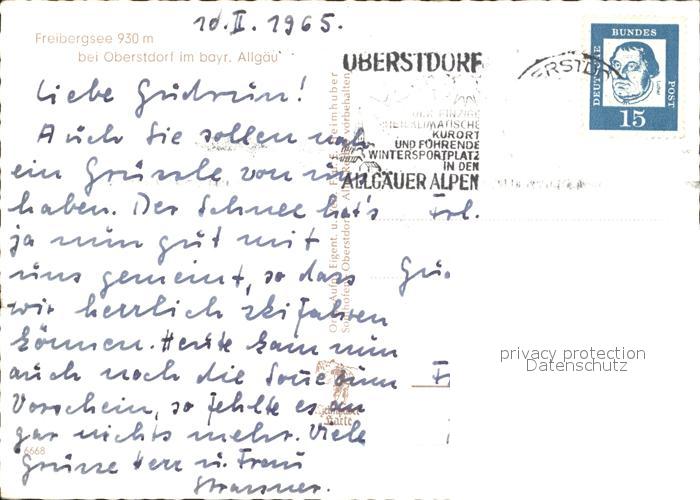 10.II.1965.
Freibergsee 930 m
bei Oberstdorf im bayr. Allgäu
Liebe Gudrun!
Auch Sie sollen noch
ein Grüssle von uns
haben. Der Schnee hat's
ja nun gut mit
uns gemeint, so dass
wir herrlich skifahren
können. Heute kam nun
auch noch die Sonne zum
Vorschein, so fehlte es an
gar nichts mehr. Viele
Grüsse Herr u. Frau
Strassner.
6668
OBERSTDORF
KURORT
UND FÜHRENDE
WINTERSPORTPLATZ
IN DEN
ALLGÄUER ALPEN
DEUTSCHE
BUNDES
POST
15
Frl.
privacy protection
Datenschutz